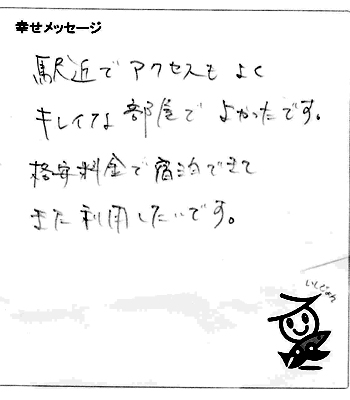 幸せメッセージ
駅近でアクセスも よく
キレイな部屋で よかったです。
格安料金で宿泊できて
また利用したいです。